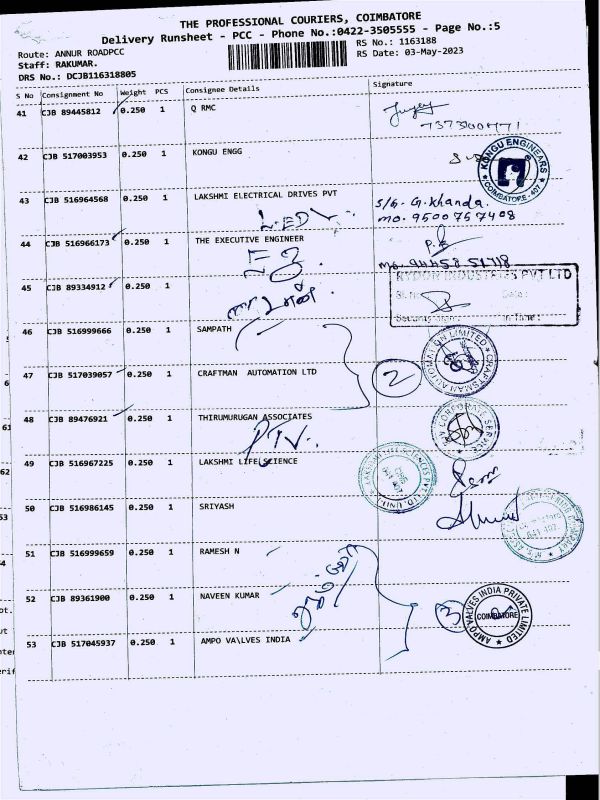 THE PROFESSIONAL COURIERS, COIMBATORE
Delivery Runsheet - PCC - Phone No.:0422-3505555 - Page No.:5
Route: ANNUR ROADPCC
RS No.: 1163188
Staff: RAKUMAR.
RS Date: 03-May-2023
DRS No.: DCJB116318805
S No Consignment No Weight PCS Consignee Details Signature
41 CJB 89445812 0.250 1 Q RMC
42 CJB 517003953 0.250 1 KONGU ENGG
KONGU ENGINEERS
COIMBATORE - 407
43 CJB 516964568 0.250 1 LAKSHMI ELECTRICAL DRIVES PVT
S/G. G. Khanda.
mo. 9500757408
44 CJB 516966173 0.250 1 THE EXECUTIVE ENGINEER
45 CJB 89334912 0.250 1
PVT LTD
Date :
In Time :
46 CJB 516999666 0.250 1 SAMPATH
47 CJB 517039057 0.250 1 CRAFTMAN AUTOMATION LTD
2
CRAFTSMAN AUTOMATION LIMITED
48 CJB 89476921 0.250 1 THIRUMURUGAN ASSOCIATES
49 CJB 516967225 0.250 1 LAKSHMI LIFE SCIENCE
50 CJB 516986145 0.250 1 SRIYASH
51 CJB 516999659 0.250 1 RAMESH N
52 CJB 89361900 0.250 1 NAVEEN KUMAR
3
AMPO VALVES INDIA PRIVATE LIMITED
COIMBATORE
53 CJB 517045937 0.250 1 AMPO VA\LVES INDIA